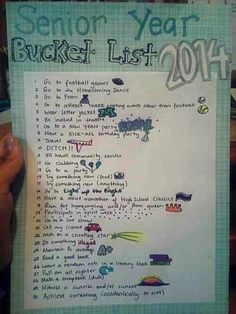 Senior Year
Bucket List 2014
1 Go to football games
2 Go to the Homecoming Dance
3 Go to Prom
4 Go to atleast one sporting event other than football
5 Wear letter jacket
6 Be involved in theatre
7 Go to a New Years party
8 Have a kick-ass birthday party
9 Travel
10 DITCH!!
11 50 hours community service
12 Go clubbing
13 Go to a party
14 Try something new (food)
15 Try something new (anything)
16 Go to Light up the Night
17 Have a movie marathon of High School Classics
18 Run for homecoming and/or prom queen
19 Participate in spirit week
20 Go to a live show
Let my
Wish on a shooting star
Do something illegal
Maintain A average
Read a good book
Leave a random note in a library book
Pull an all nighter
Make a scrapbook (duh)
Witness a sunrise and/or sunset
Achieve something (academically or not)